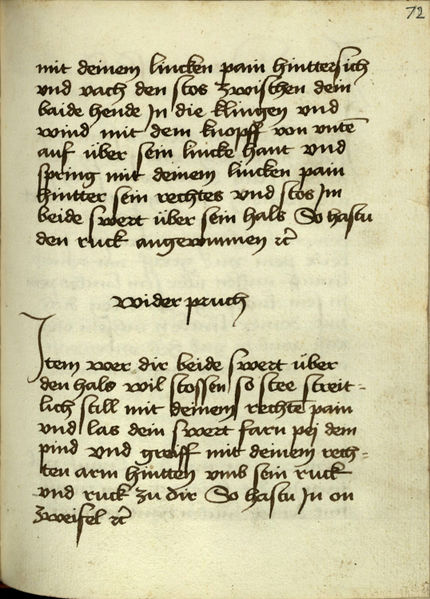 72
mit deinem lincken pain hinttersich
vnd vach den stos zwischen dein
baide hende In die klingen vnd
wind mit dem knopff von vnte͞
auf über sein lincke hant vnd
spring mit deinem lincken pain
hintter sein rechtes vnd stos Im
beide swert über sein hals So hastu
den ruck angewunnen ꝛc̄
wider pruch
Item wer dir beide swert über
den hals wil stossen so stee streit-
lich still mit deinem rechte͞ pain
vnd las dein swert farn pei dem
pind vnd greiff mit deinem rech-
ten arm hintten vmb sein ruck
vnd ruck zu dir So hastu In on
zweifel ꝛc̄